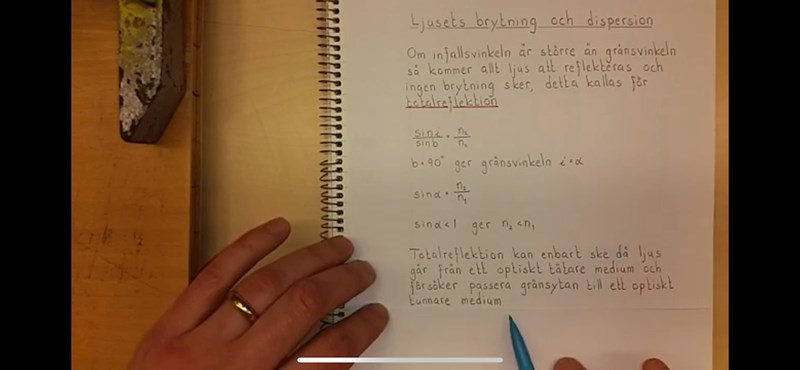 Ljusets brytning och dispersion
Om infallsvinkeln är större än gränsvinkeln
så kommer allt ljus att reflekteras och
ingen brytning sker, detta kallas för
totalreflektion
sin i / sin b = n₂ / n₁
b = 90° ger gränsvinkeln i = α
sin α = n₂ / n₁
sin α < 1 ger n₂ < n₁
Totalreflektion kan enbart ske då ljus
går från ett optiskt tätare medium och
försöker passera gränsytan till ett optiskt
tunnare medium